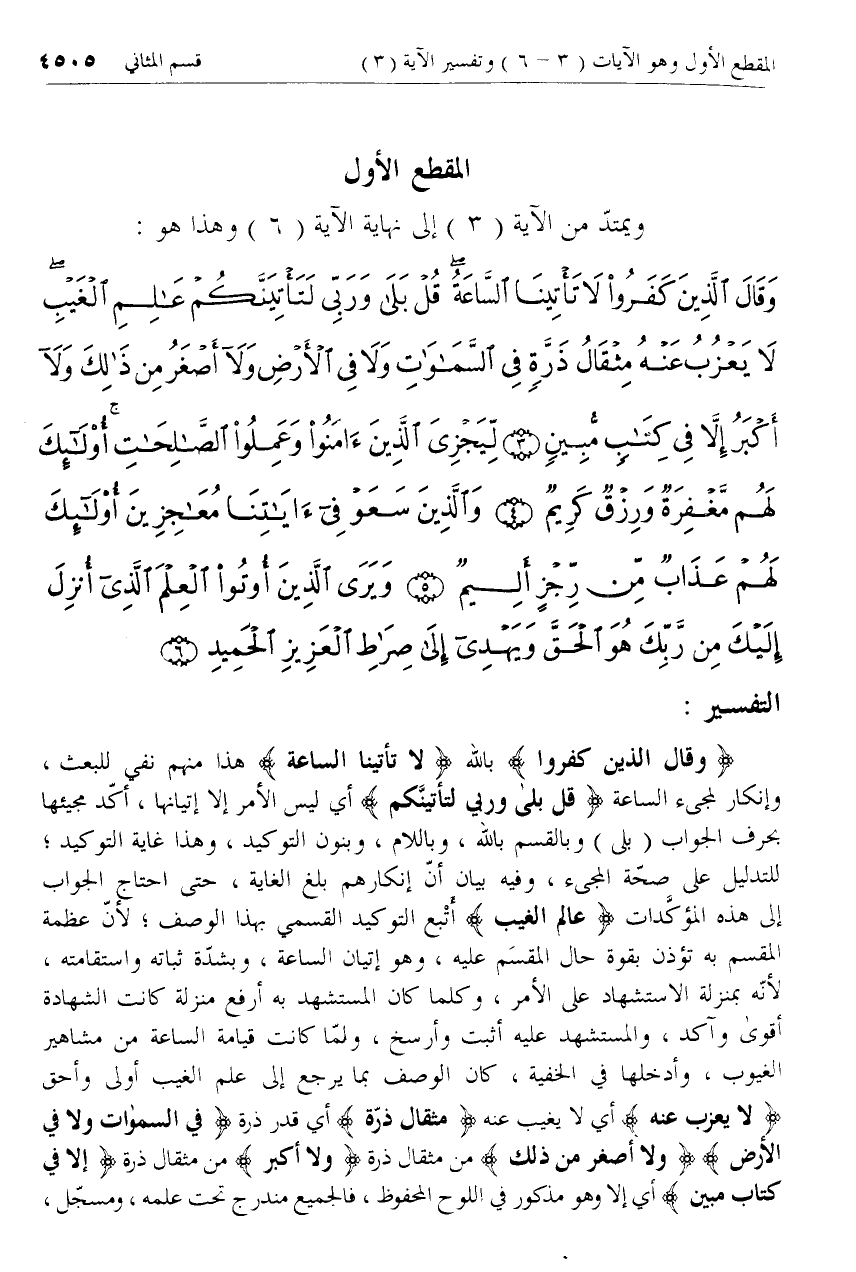 المقطع الأول وهو الآيات ( ٣ – ٦ ) وتفسير الآية ( ٣ ) قسم المثاني ٤٥٠٥
المقطع الأول
ويمتدّ من الآية ( ٣ ) إلى نهاية الآية ( ٦ ) وهذا هو :
وَقَالَ ٱلَّذِينَ كَفَرُواْ لَا تَأْتِينَا ٱلسَّاعَةُۖ قُلْ بَلَىٰ وَرَبِّى لَتَأْتِيَنَّكُمْ عَـٰلِمِ ٱلْغَيْبِۖ
لَا يَعْزُبُ عَنْهُ مِثْقَالُ ذَرَّةٍ فِى ٱلسَّمَـٰوَٰتِ وَلَا فِى ٱلْأَرْضِ وَلَآ أَصْغَرُ مِن ذَٰلِكَ وَلَآ
أَكْبَرُ إِلَّا فِى كِتَـٰبٍ مُّبِينٍ ۝٣ لِّيَجْزِىَ ٱلَّذِينَ ءَامَنُواْ وَعَمِلُواْ ٱلصَّـٰلِحَـٰتِۚ أُوْلَـٰٓئِكَ
لَهُم مَّغْفِرَةٌ وَرِزْقٌ كَرِيمٌ ۝٤ وَٱلَّذِينَ سَعَوْ فِىٓ ءَايَـٰتِنَا مُعَـٰجِزِينَ أُوْلَـٰٓئِكَ
لَهُمْ عَذَابٌ مِّن رِّجْزٍ أَلِيمٌ ۝٥ وَيَرَى ٱلَّذِينَ أُوتُواْ ٱلْعِلْمَ ٱلَّذِىٓ أُنزِلَ
إِلَيْكَ مِن رَّبِّكَ هُوَ ٱلْحَقَّ وَيَهْدِىٓ إِلَىٰ صِرَٰطِ ٱلْعَزِيزِ ٱلْحَمِيدِ ۝٦
التفسير :
﴿ وقال الذين كفروا ﴾ بالله ﴿ لا تأتينا الساعة ﴾ هذا منهم نفي للبعث ،
وإنكار لمجيء الساعة ﴿ قل بلىٰ وربي لتأتينَّكم ﴾ أي ليس الأمر إلا إتيانها ، أكّد مجيئها
بحرف الجواب ( بلى ) وبالقسم بالله ، وباللام ، وبنون التوكيد ، وهذا غاية التوكيد ؛
للتدليل على صحّة المجيء ، وفيه بيان أنّ إنكارهم بلغ الغاية ، حتى احتاج الجواب
إلى هذه المؤكَّدات ﴿ عالم الغيب ﴾ أُتْبع التوكيد القسمي بهذا الوصف ؛ لأنّ عظمة
المقسم به تؤذن بقوة حال المقسَم عليه ، وهو إتيان الساعة ، وبشدّة ثباته واستقامته ،
لأنّه بمنزلة الاستشهاد على الأمر ، وكلما كان المستشهد به أرفع منزلة كانت الشهادة
أقوىٰ وآكد ، والمستشهد عليه أثبت وأرسخ ، ولمّا كانت قيامة الساعة من مشاهير
الغيوب ، وأدخلها في الخفية ، كان الوصف بما يرجع إلى علم الغيب أولى وأحق
﴿ لا يعزب عنه ﴾ أي لا يغيب عنه ﴿ مثقال ذرّة ﴾ أي قدر ذرة ﴿ في السموٰات ولا في
الأرض ﴾ ﴿ ولا أصغر من ذلك ﴾ من مثقال ذرة ﴿ ولا أكبر ﴾ من مثقال ذرة ﴿ إلا في
كتاب مبين ﴾ أي إلا وهو مذكور في اللوح المحفوظ ، فالجميع مندرج تحت علمه ، ومسجّل ،